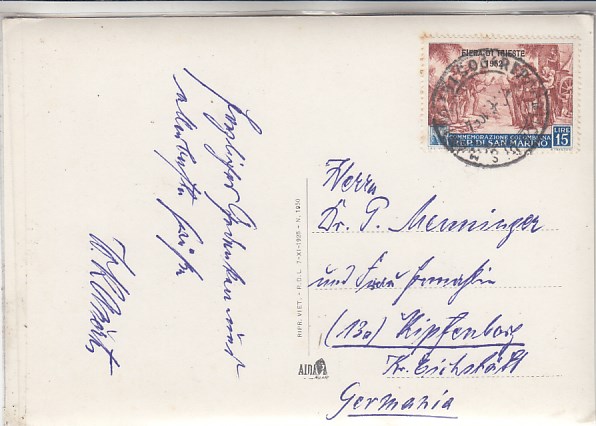 herzliches Gedenken und
allerbeste Grüße
FIERA DI TRIESTE
1952
COMMEMORAZIONE COLOMBIANA
REP. DI SAN MARINO
LIRE
15
Herrn
Dr. P. Menninger
und Frau Gemahlin
(13a) Kipfenberg
Kr. Eichstätt
Germania
RIPR. VIET. - P.D.L. 7-XI-1926 - N. 1950